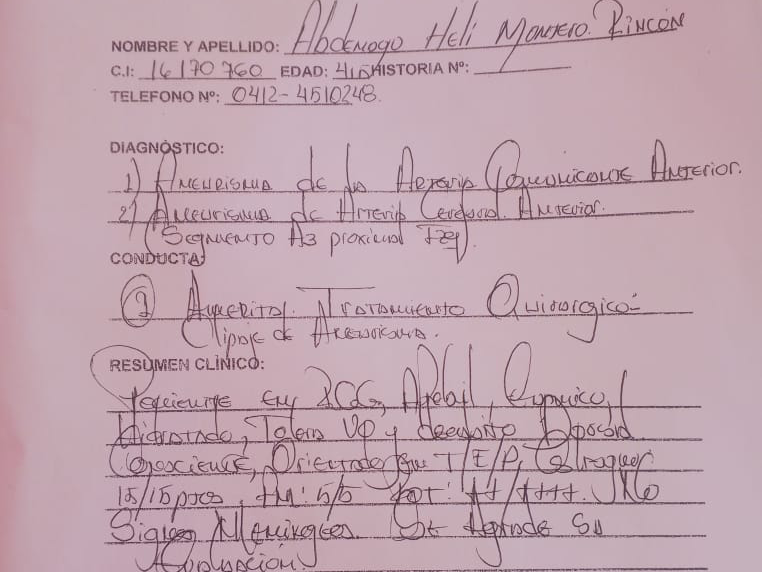 NOMBRE Y APELLIDO: Abdenago Heli Montero. Rincón
C.I: 16170760 EDAD: 41 HISTORIA Nº:
TELEFONO Nº: 0412-4510248.
DIAGNÓSTICO:
1) Aneurisma de la Arteria Comunicante Anterior.
2) Aneurisma de Arteria Cerebral. Anterior.
(Segmento A3 proximal Izq).
CONDUCTA:
Amerita. Tratamiento Quirurgico-
Clipaje de Aneurisma.
RESUMEN CLÍNICO:
Paciente en Afebril, Eupneico,
Hidratado, Tolera VO y decubito Dorsal
Consciente, Orientado en T/E/P, Glasgow
15/15 ptos. FM: 5/5 ROT: ++/++++. No
Signos Meningeos. Se Agradece Su
Evaluación.